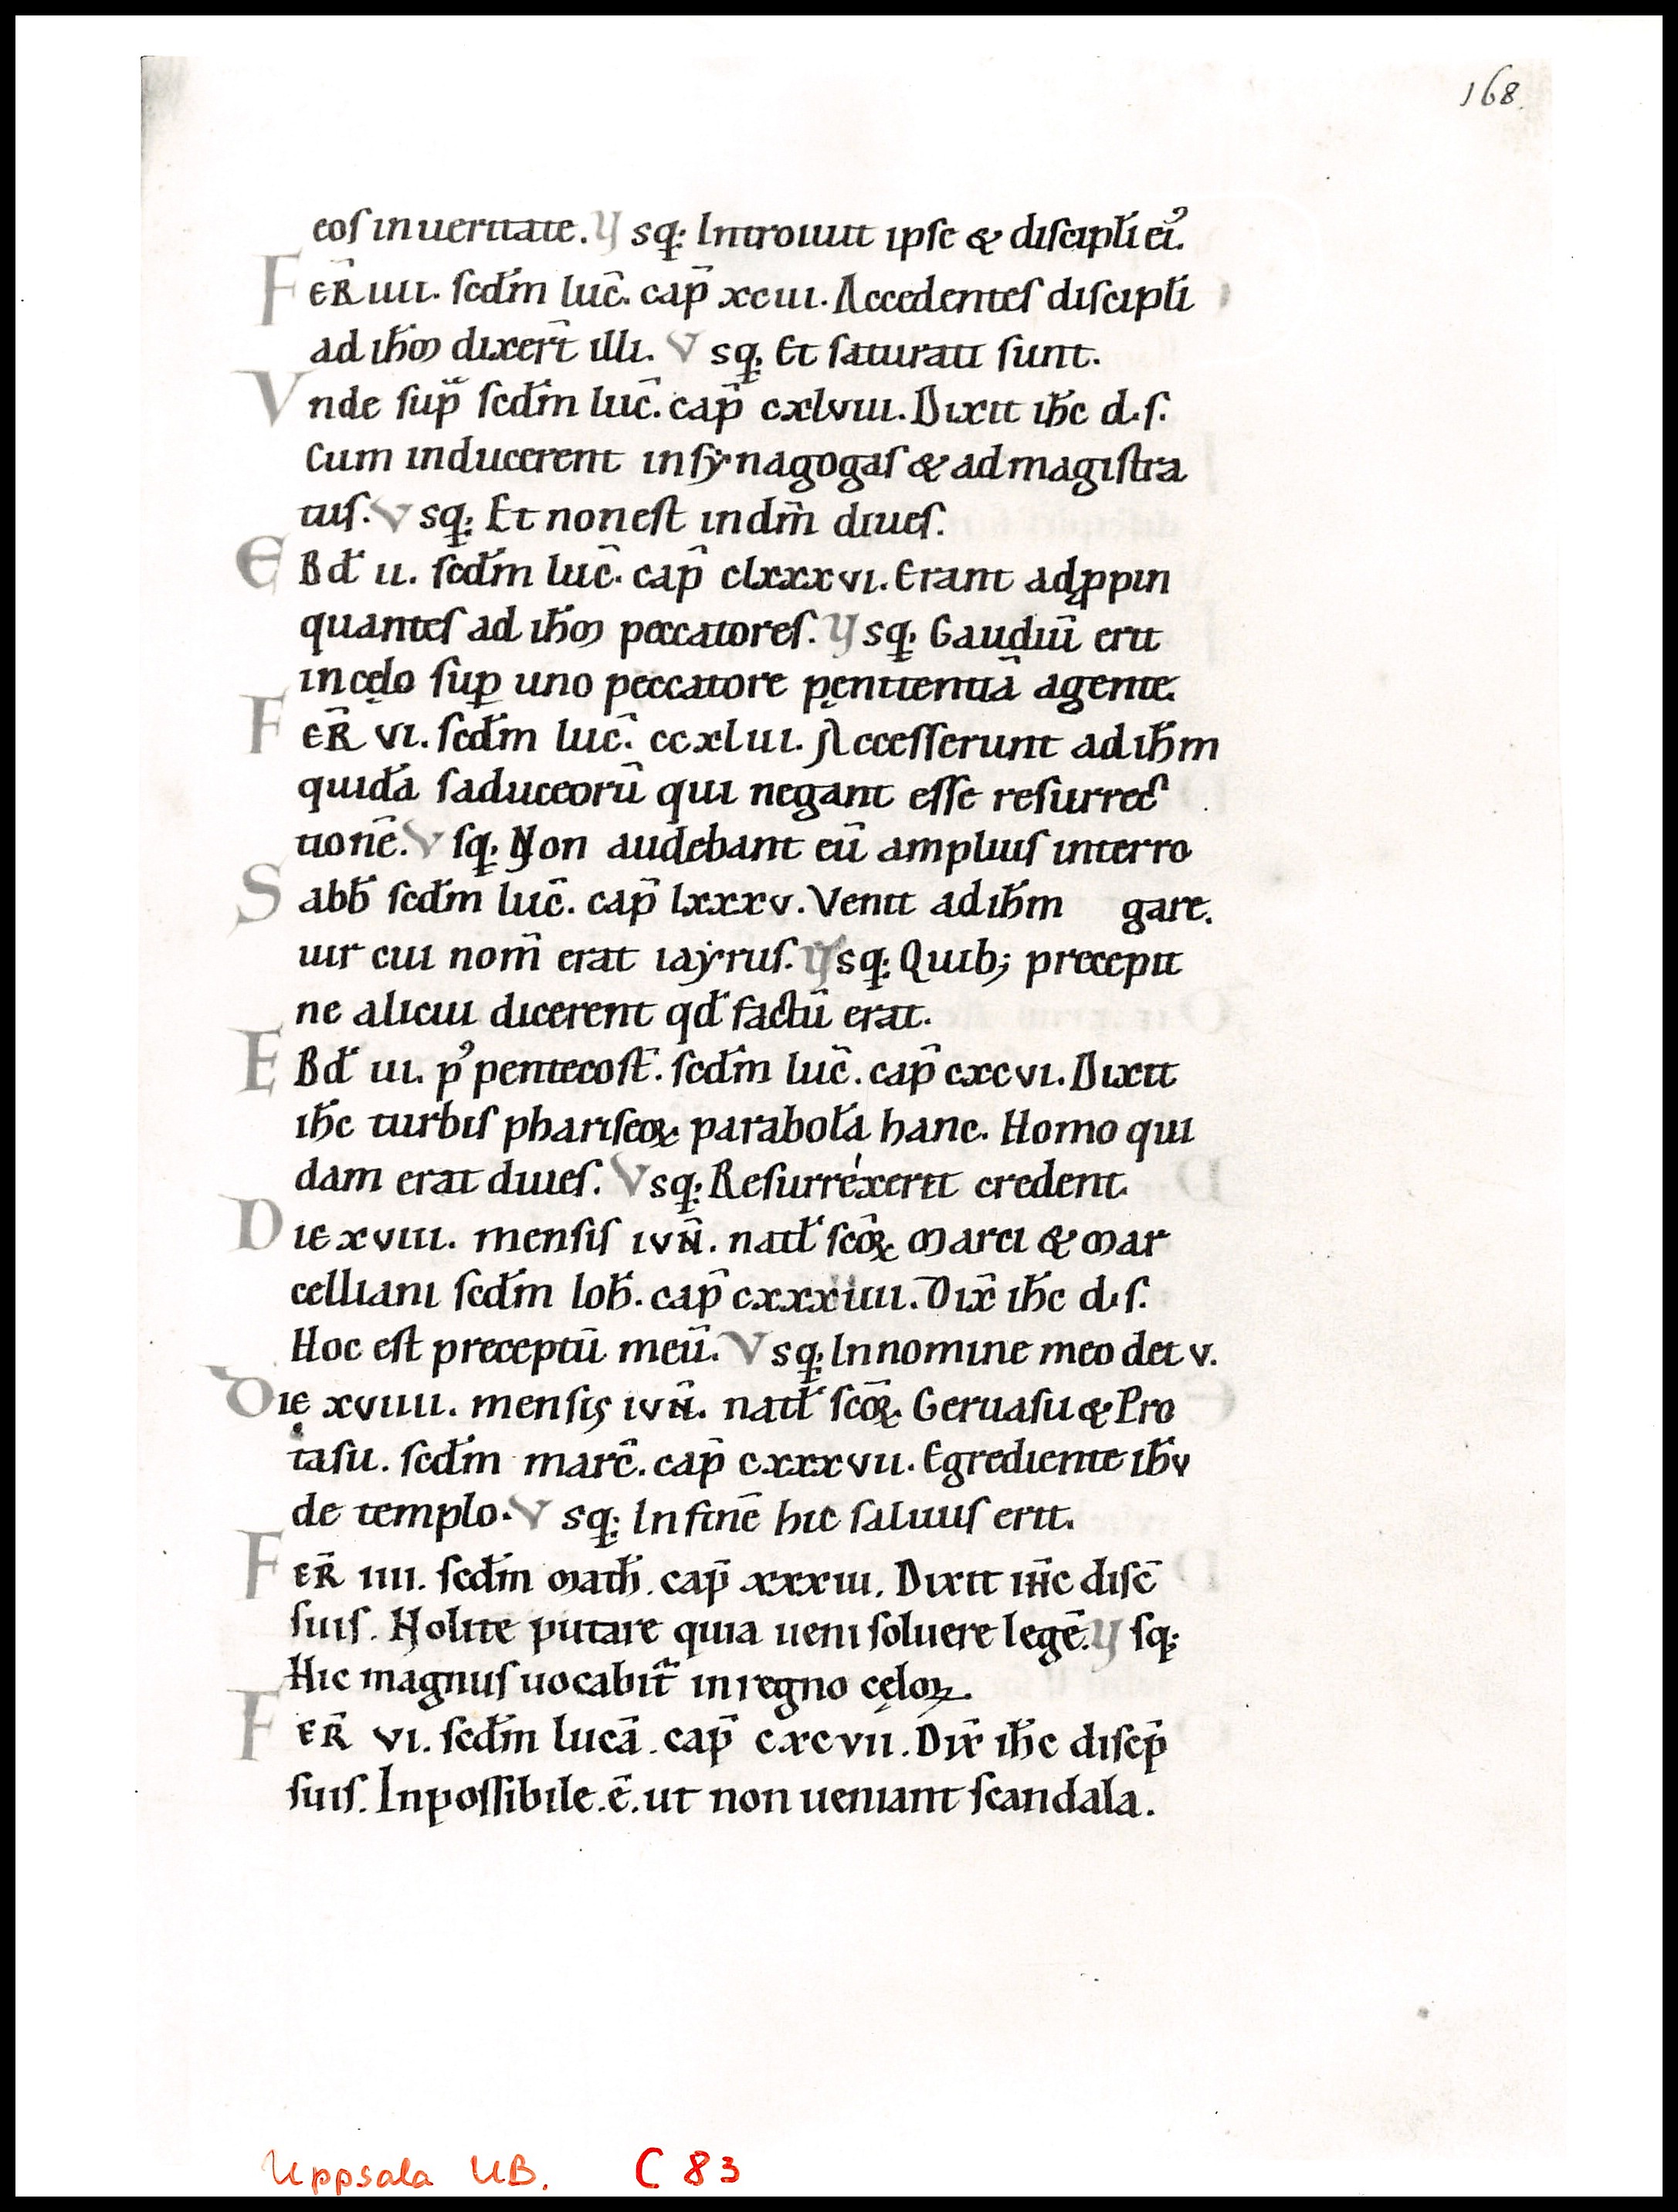 168.
eoſ in ueritate. V sq: Introiuit ipſe & diſcipli̅ ei᾿.
FER̅ IIII. ſcd̅m luc̅. cap̅ xciii. Accedenteſ diſcipli̅
ad ih̅m dixer̅t illi. V sq: Et ſaturati ſunt.
Vnde ſup̅ ſcd̅m luc̅. cap̅ cxlviii. Dixit ih̅c d. ſ.
Cum inducerent in ſẏnagogaſ & ad magiſtra
tuſ. V sq: Et non eſt in dm̅ diueſ.
EBd̅ ii. ſcd̅m luc̅. cap̅ clxxxvi. Erant adꝓpin
quanteſ ad ih̅m peccatoreſ. V sq: Gaudiu̅ erit
in cęlo ſuꝑ uno peccatore pęnitentia̅ agente.
FER̅ vi. ſcd̅m luc̅. ccxliii. Acceſſerunt ad ih̅m
quida̅ ſaduceoru̅ qui negant eſſe reſurrec
tione̅. V ſq: Non audebant eu̅ ampliuſ interro
Sabb̅ ſcd̅m luc̅. cap̅ lxxxv. Venit ad ih̅m gare.
uir cui nom̅ erat iaẏruſ. V sq: Quib; precepit
ne alicui dicerent qd̅ factu̅ erat.
EBd̅ iii. p᾿ pentecoſt̅. ſcd̅m luc̅. cap̅ cxcvi. Dixit
ih̅c turbiſ phariſeoꝝ parabola̅ hanc. Homo qui
dam erat diueſ. V sq: Reſurréxerit credent.
DIE xviii. menſiſ IVN̅. natl̅ ſco̅ꝝ Marci & Mar
celliani ſcd̅m Ioh̅. cap̅ cxxxiiii. Dix̅ ih̅c d. ſ.
Hoc eſt preceptu̅ meu̅. V sq: In nomine meo det v.
DIE xviiii. menſiſ IVN̅. natl̅ ſco̅ꝝ Geruaſii & Pro
taſii. ſcd̅m marc̅. cap̅ cxxxvii. Egrediente ih̅v
de templo. V sq: In fine̅ hic ſaluuſ erit.
FER̅ IIII. ſcd̅m Math̅. cap̅ xxxiii. Dixit ih̅c diſc̅
ſuiſ. Nolite putare quia ueni ſoluere lege̅. V ſq:
Hic magnuſ uocabit̅ in regno cęloꝝ.
FER̅ VI. ſcd̅m luca̅. cap̅ cxcvii. Dix̅ ih̅c diſcp̅
ſuiſ. Inpoſſibile. e̅. ut non ueniant ſcandala.
Uppsala UB. C 83